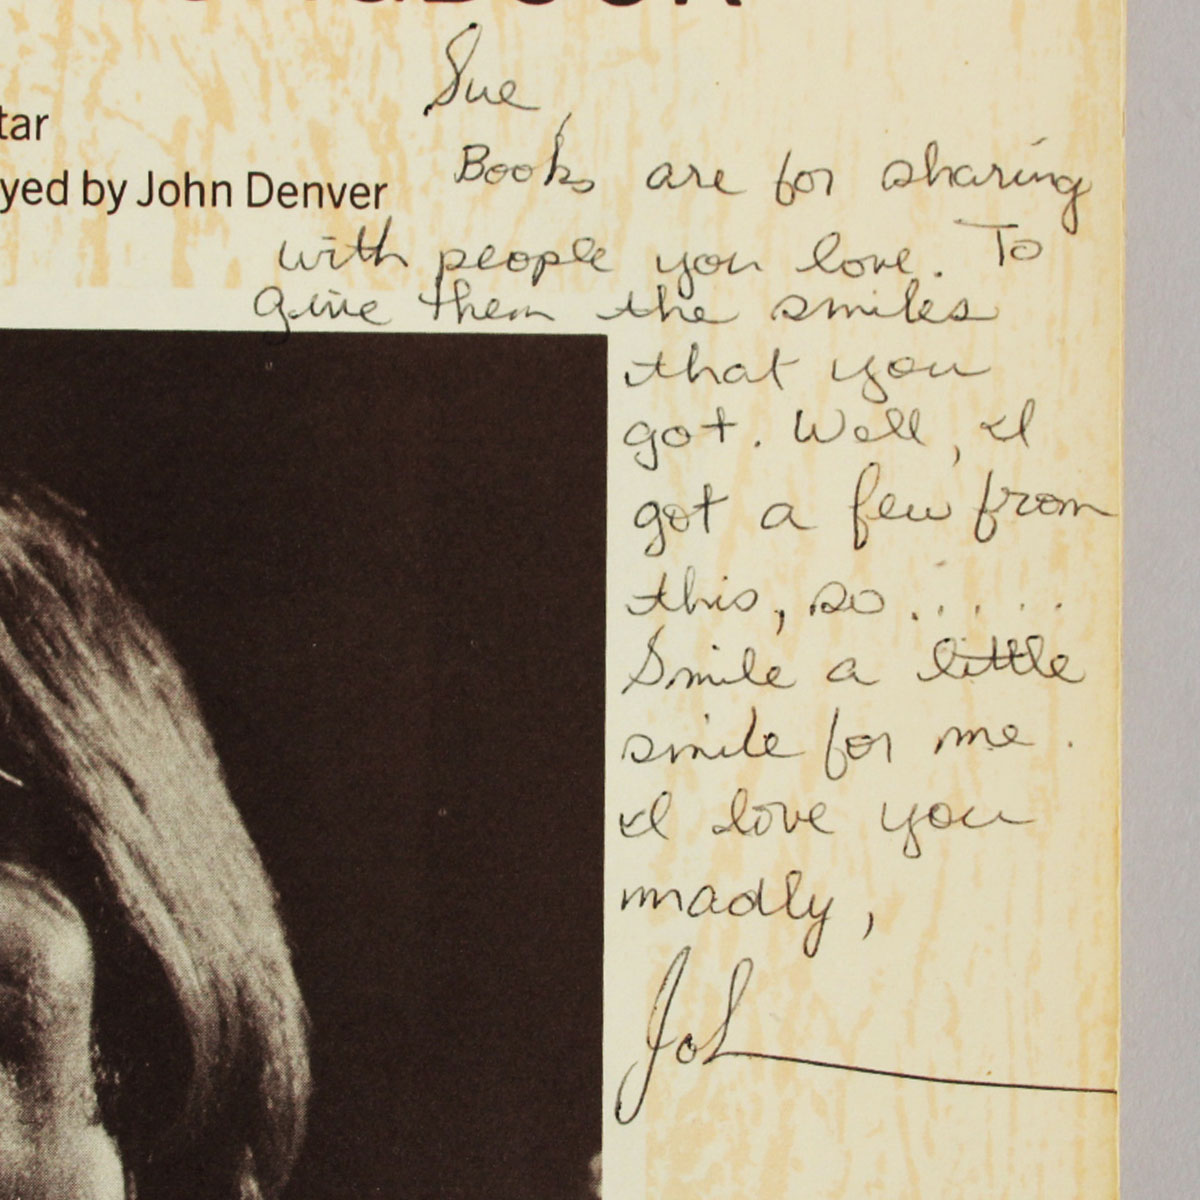 Sue,
tar
Books are for sharing
yed by John Denver
with people you love. To
give them the smiles
that you
got. Well, I
got a few from
this, so.....
Smile a little
smile for me.
I love you
madly,
Joh